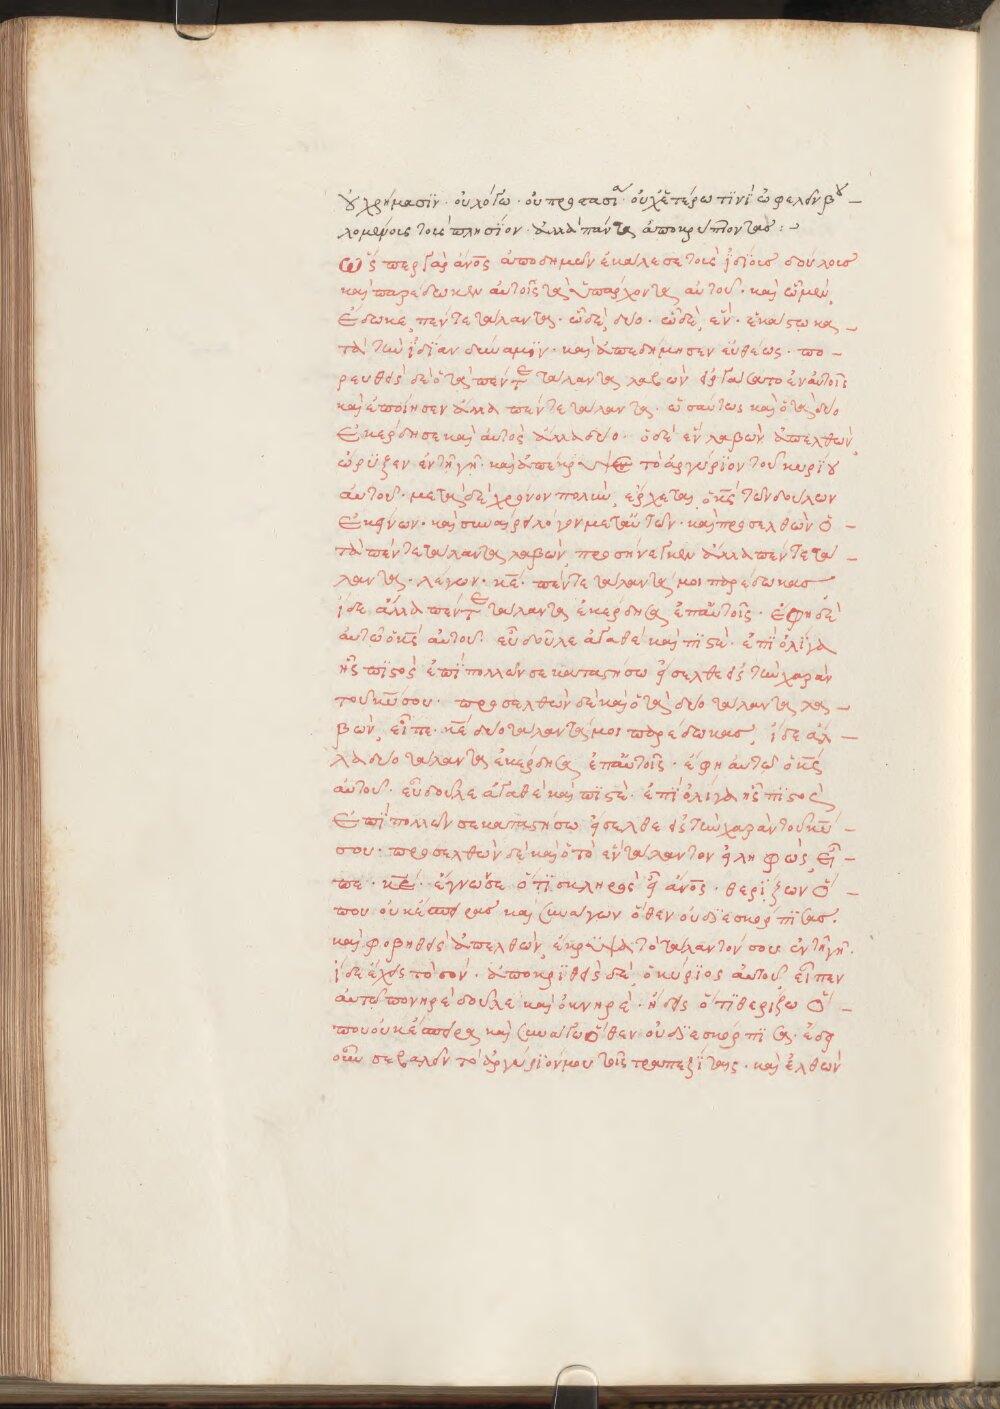 ου χρήμασϊν· οὐ λόγω· οὐ προστασία· οὐχ ἑτέρω τϊνὶ ὠφελεῖν βου–
λομένοις τοὺς πλησϊόν· ἀλλὰ πάντα ἀποκρύπτοντας :
Ὥσπερ γὰρ ἄνο̅ς̅ ἀποδημῶν ἐκάλεσε τοὺς ἰδΐοις δούλοις
καὶ παρέδωκεν αὐτοῖς τὰ ὑπάρχοντα αὐτοῦ· καὶ ᾧ μὲν,
ἔδωκε, πέντε τάλαντα· ᾧ δὲ, δύο· ᾧ δὲ, ἕν· ἑκάστω κα–
τὰ τὴν ἰδΐαν δύναμϊν· καὶ ἀπεδήμησεν εὐθέως· πο–
ρευθεὶς δὲ ὁ τὰ πέντε τάλαντα λαβὼν εἰργάσατο ἐν αὐτοῖς
καὶ ἐποίησεν ἄλλα πέντε τάλαντα· ὡσαύτως καὶ ὁ τὰ δύο
ἐκέρδησε καὶ αὐτὸς ἄλλα δύο· ὁ δὲ ἓν λαβὼν ἀπελθὼν,
ὤρϋξεν ἐν τῆ γῆ· καὶ ἀπέκρυψε τὸ ἀργύρϊον τοῦ κυρίου
αὐτοῦ· μετὰ δὲ χρόνον πολὺν, ἔρχεται ὁ κ̅ς̅ τῶν δούλων
ἐκείνων· καὶ συναίρει λόγον μετ αὐτῶν· καὶ προσελθὼν ὁ –
τὰ πέντε τάλαντα λαβὼν, προσήνεγκεν ἄλλα πέντε τά–
λαντα· λέγων· κ̅ε̅· πέντε τάλαντά μοι παρέδωκας
ἴδε ἄλλα πέντε τάλαντα ἐκέρδησα ἐπ αὐτοῖς· ἔφη δὲ
αὐτῶ ὁ κ̅ς̅ αὐτοῦ· εὖ δοῦλε ἀγαθὲ καὶ πϊστὲ· ἐπὶ ὀλίγα
ἦς πϊστὸς ἐπὶ πολλῶν σε καταστήσω εἴσελθε εἰς τὴν χαρὰν
τοῦ κ̅υ̅ σου· προσελθὼν δὲ καὶ ὁ τὰ δύο τάλαντα λα–
βὼν, εἶπε· κ̅ε̅ δύο τάλαντά μοι παρέδωκας, ἴδε ἄλ–
λα δύο τάλαντα ἐκέρδησα ἐπ αὐτοῖς· ἔφη αὐτῶ ὁ κ̅ς̅
αὐτοῦ· εὖ δοῦλε ἀγαθὲ καὶ πϊστὲ· ἐπὶ ὀλίγα ἦς πϊστὸς
ἐπὶ πολλῶν σε καταστήσω εἴσελθε εἰς τὴν χαρὰν τοῦ κ̅υ̅ –
σου· προσελθὼν δὲ καὶ ὁ τὸ ἓν τάλαντον εἰληφὼς, εἶ–
πε· κ̅ε̅· ἔγνων σε ὅτϊ σκληρὸς εἶ ἄνο̅ς̅· θερίζων ὅ –
που οὐκ ἔσπειρας καὶ συνάγων ὅθεν οὐ δϊεσκόρπϊσας·
καὶ φοβηθεὶς ἀπελθὼν, ἔκρϋψα τὸ τάλαντόν σου ἐν τῆ γῆ·
ἴδε ἔχεις τὸ σόν· ἀποκρϊθεὶς δὲ, ὁ κύρϊος αὐτοῦ, εἶπεν
αὐτῶ πονηρὲ δοῦλε καὶ ὀκνηρὲ· ἤδεις ὅτϊ θερίζω ὅ –
που οὐκ ἔσπειρα καὶ συνάγω ὅθεν οὐ δϊεσκόρπϊσα· ἔδει
οὖν σε βαλεῖν τὸ ἀργύρϊόν μου τοῖς τραπεζίταις· καὶ ἐλθὼν